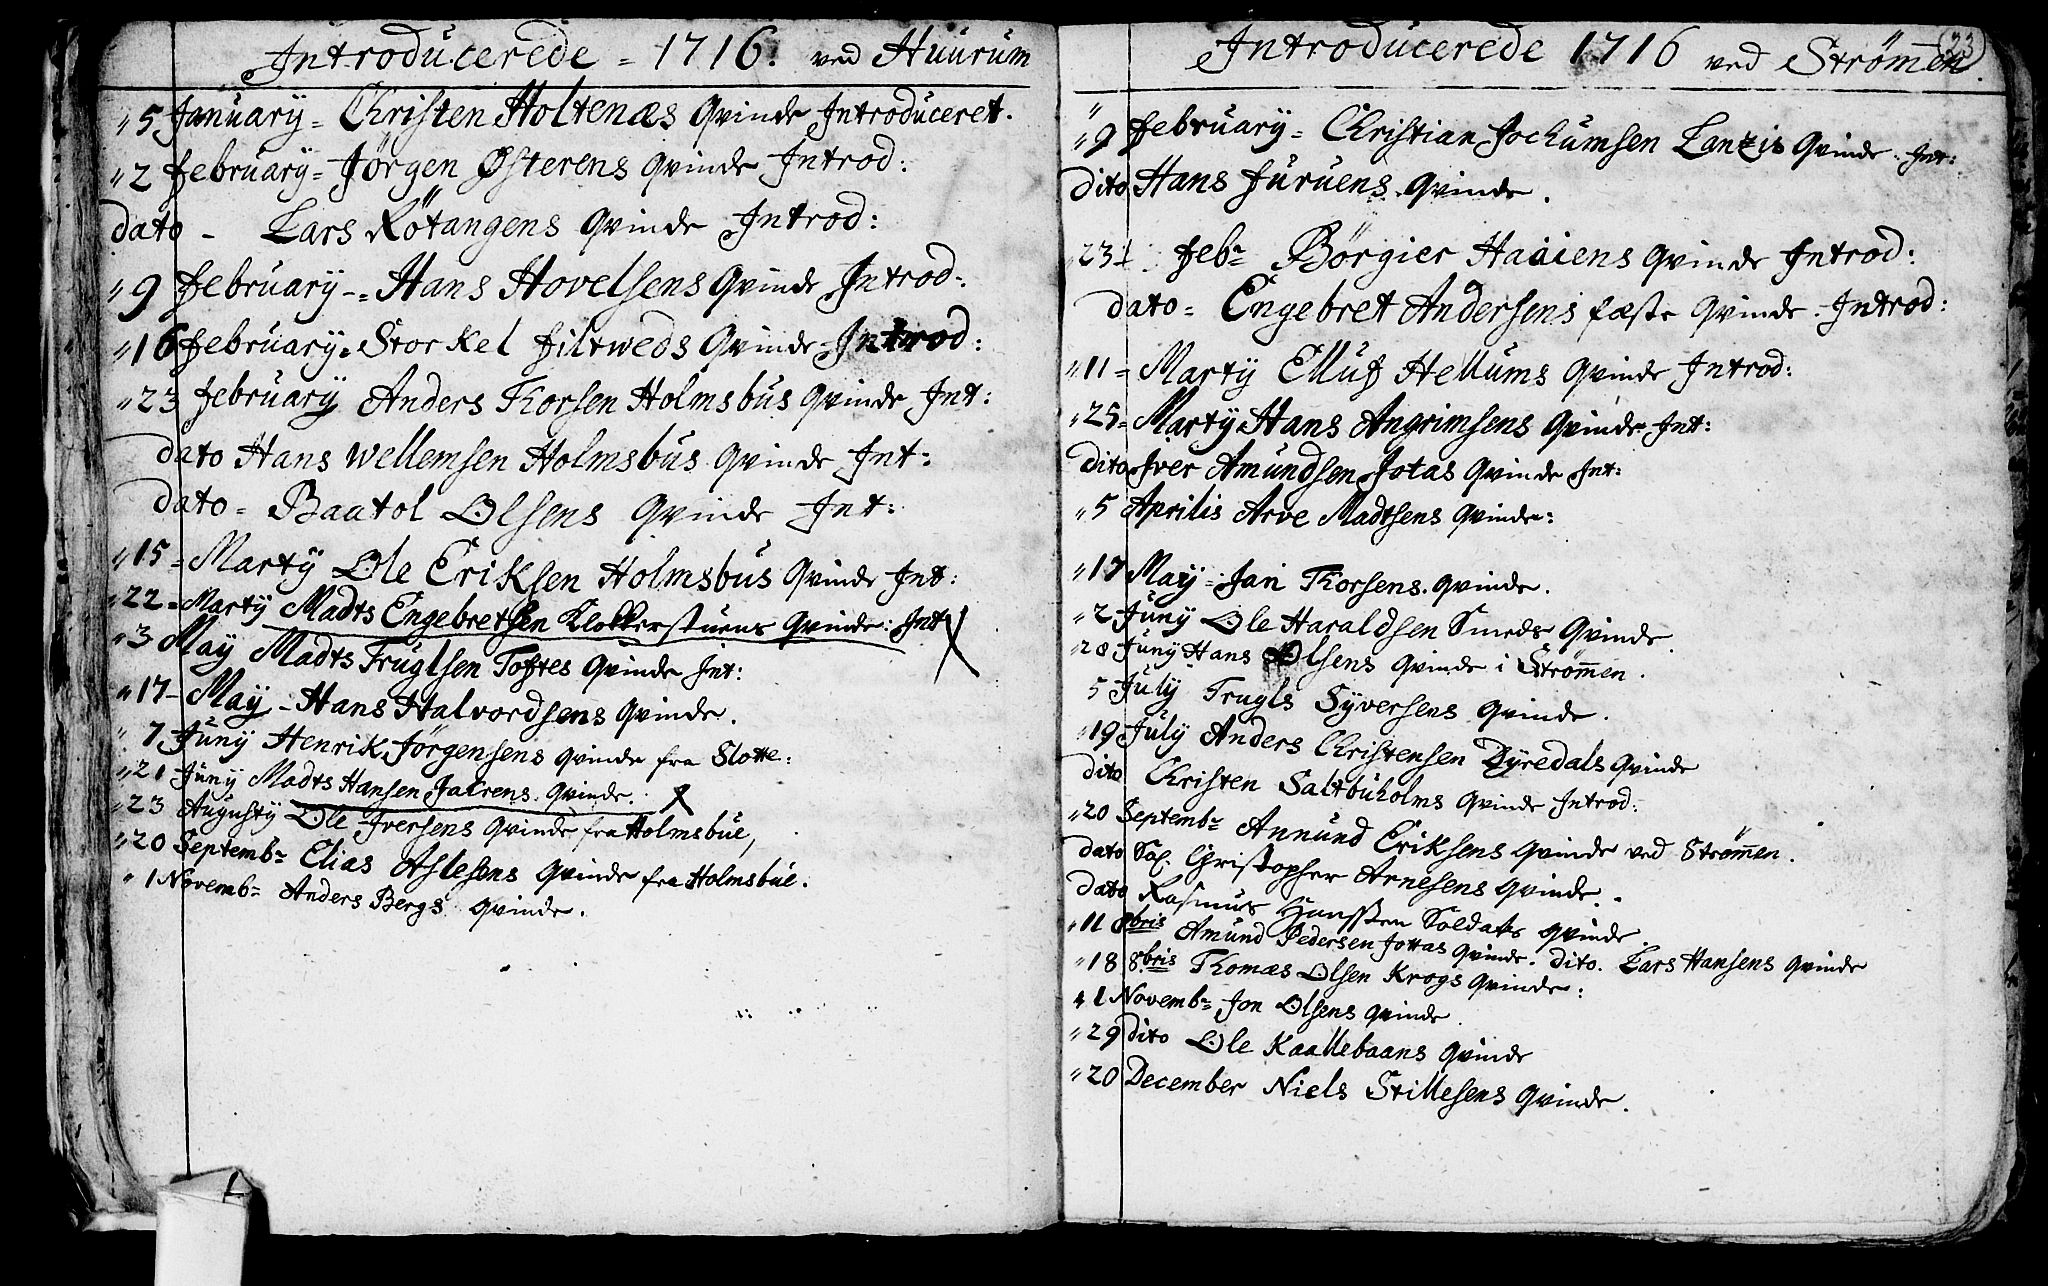 Introducerede = 1716. ved Huurum
" 5 January = Christen Holtenæs Qvinde Introduceret.
" 2 february = Jörgen Østerens qvinde Introd:
dato - Lars Rötangens qvinde Introd:
" 9 february -= Hans Hovelsens Qvinde Introd:
" 16 february = Storkel filtweds Qvinde Introd:
" 23 february Anders Thorsen Holmsbus qvinde Int:
dato Hans Wellemsen Holmsbus qvinde Int:
dato = Baatol Olsens qvinde Int:
" 15 = Marty Ole Eriksen Holmsbus Qvinde Int:
" 22 = Marty Madts Engebretsen Klokkerstuens Qvinde: Int X
" 3 May Madts Truglsen Toftes Qvinde Int:
" 17 - May - Hans Halvordsens qvinde.
" 7 Juny Henrik Jörgensens qvinde fra Slotte:
" 21 Juny Madts Hansen Jærens qvinde. X
" 23 Augusty Ole Iversens Qvinde fra Holmsbue,
" 20 Septembr Elias Aslesens qvinde fra Holmsbue.
" 1 Novembr Anders Bergs qvinde.
23
Introducerede 1716 ved Strömen.
" 9 february = Christian Jochumsen Lantzis Qvinde. Int:
dito Hans furuens qvinde.
" 23 febr Börgier Haaiens qvinde Introd:
dato = Engebret Andersens fæste Qvinde. Introd:
" 11 = Marty Elluf Hellums qvinde Introd:
" 25 = Marty Hans Angrimsens Qvinde Int:
dito Iver Amundsen Jotas qvinde Int:
" 5 Aprilis Arve Madtsens qvinde:
" 17 May = Jan Thorsens. qvinde.
" 2 Juny Ole Haraldsen Smeds Qvinde.
" 28 Juny Hans Olsens qvinde i Strömen.
5 July Trugls Syversens qvinde.
" 19 July Anders Christensen Dyredals qvinde
dito Christen Saltbuholms qvinde Introd:
" 20 Septembr Annund Eriksens qvinde ved Strömen.
dato Sal. Christopher Arnesens qvinde.
dato Rasmus Hanssen Soldats qvinde.
" 11 8bris Amund Pedersen Jottas qvinde. dito. Lars Hansens qvinde
" 18 8bris Thomæs Olsen Krogs qvinde:
" 1 Novembr Jon Olsens qvinde.
" 29 dito Ole Kaallebaans qvinde
" 20 December Niels Stillesens qvinde.